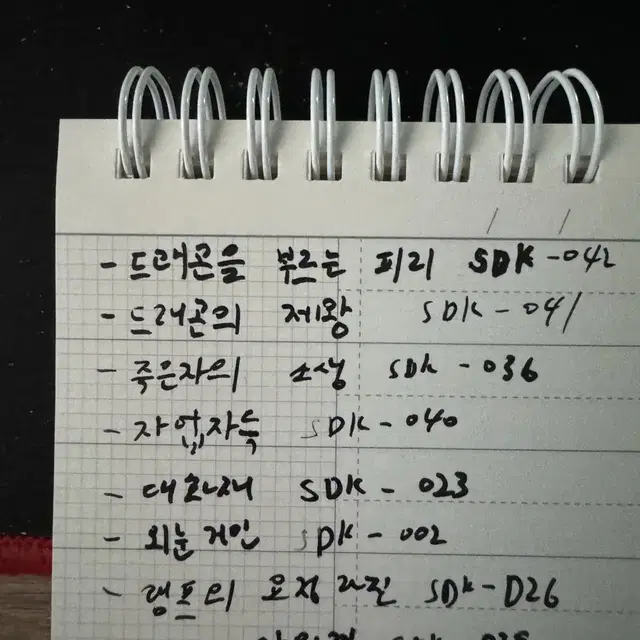 - 드래곤을 부르는 피리 SDK-042
- 드래곤의 제왕 SDK-041
- 죽은자의 소생 SDK-036
- 자업자득 SDK-040
- 대화재 SDK-023
- 외눈 거인 SDK-002
- 램프의 요정 라진 SDK-D26